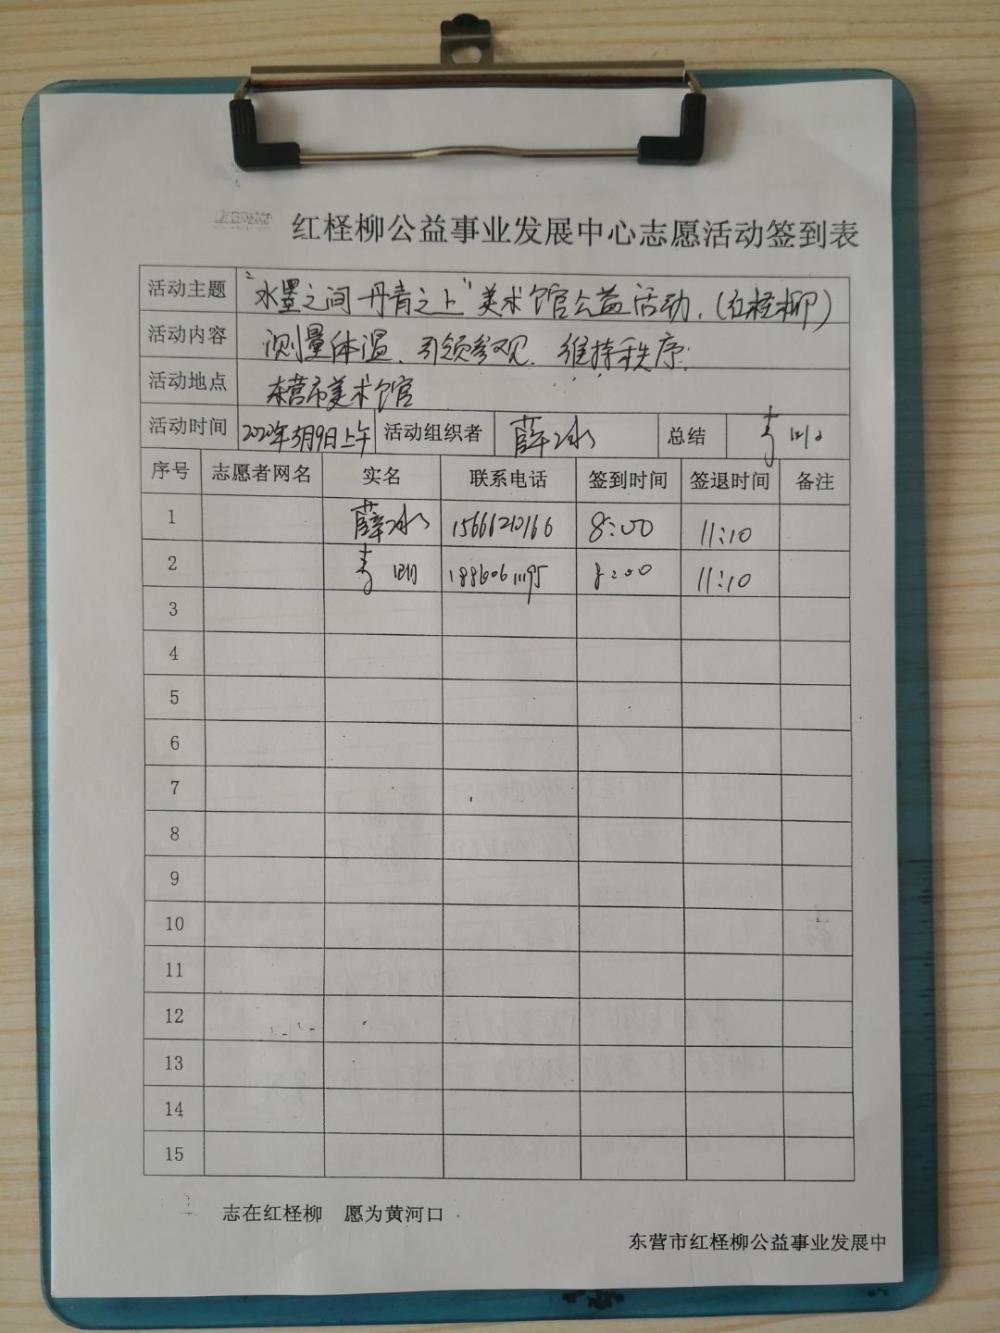 红柽柳公益事业发展中心志愿活动签到表
活动主题 "水墨之间 丹青之上"美术馆公益活动.(红柽柳)
活动内容 测量体温、引领参观、维持秩序.
活动地点 东营市美术馆
活动时间 2022年3月9日上午 活动组织者 薛冰 总结
序号 志愿者网名 实名 联系电话 签到时间 签退时间 备注
1 薛冰 15666210166 8:00 11:10
2 8:00 11:10
3
4
5
6
7
8
9
10
11
12
13
14
15
志在红柽柳 愿为黄河口
东营市红柽柳公益事业发展中